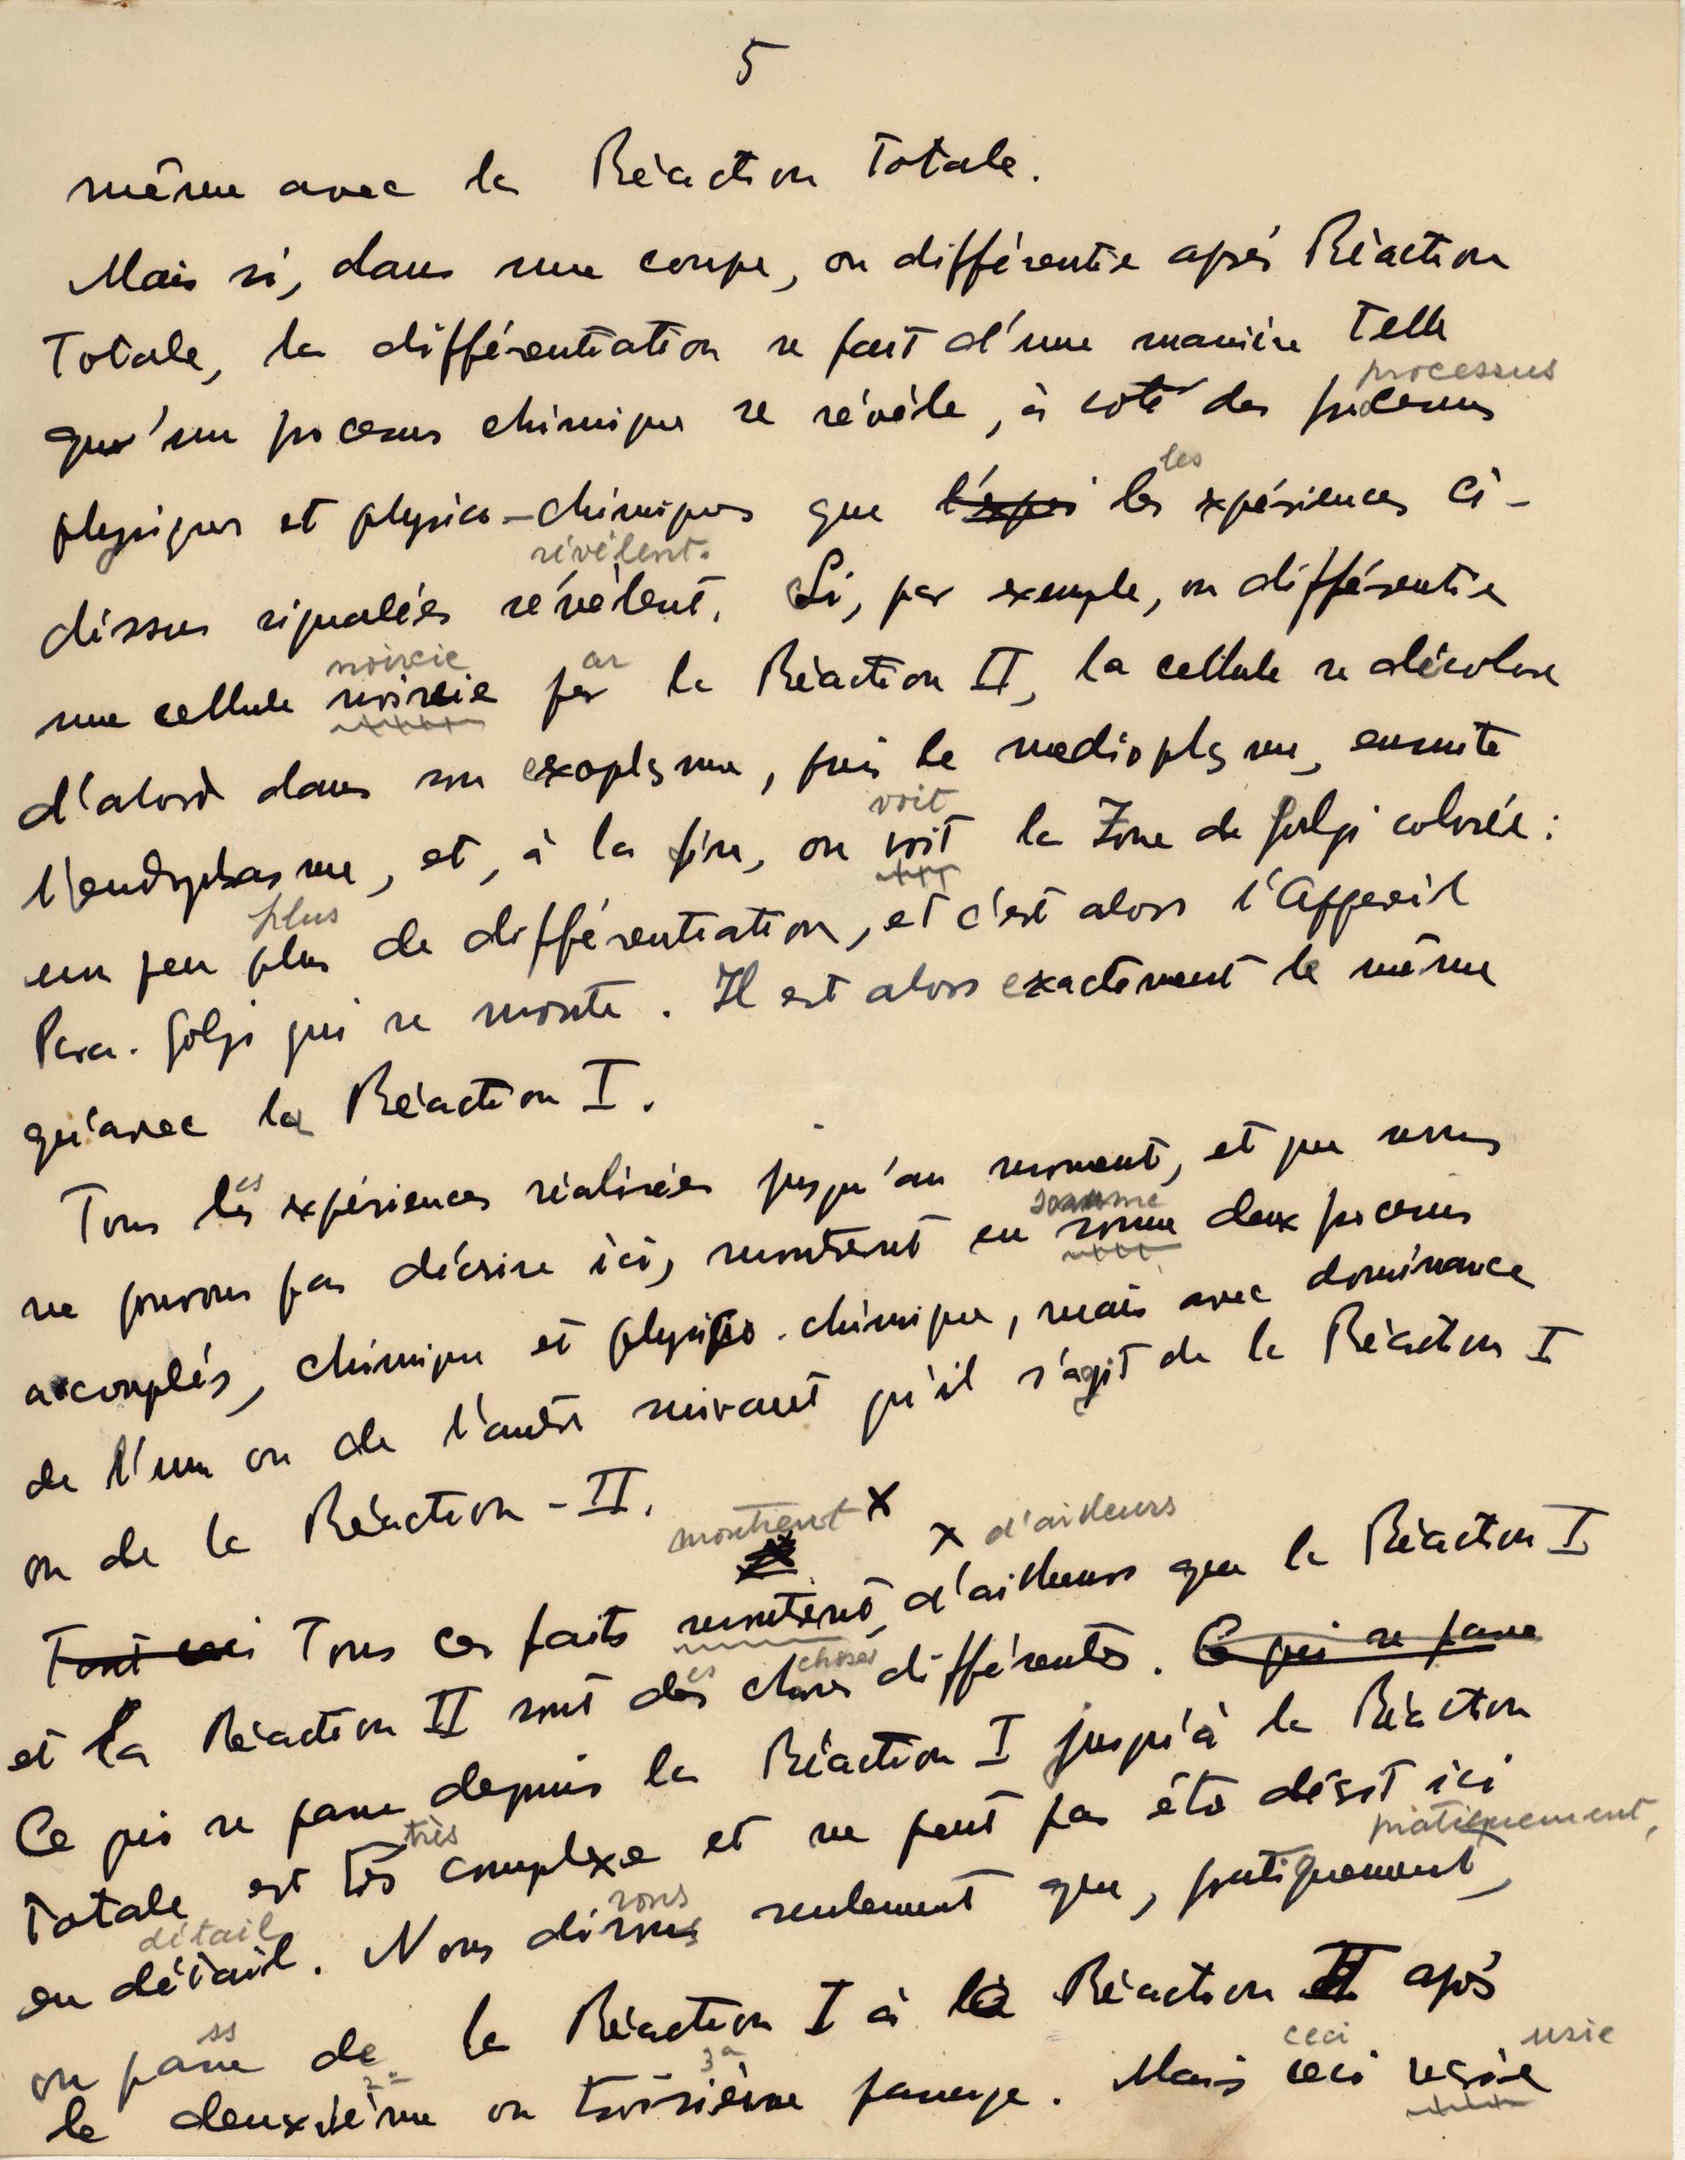 5
même avec la Réaction Totale.
Mais si, dans une coupe, on différentie après Réaction
Totale, la différentiation se fait d'une manière telle
processus
qu'un processus chimique se révèle, à coté des processus
les
physiques et physico-chimiques que l'expé les expériences ci-
révèlent.
dessus signalées révèlent. Si, par exemple, on différentie
noircie ar
une cellule noircie par la Réaction II, la cellule se décolore
d'abord dans son exoplasme, puis le medioplasme, ensuite
voit
l'endoplasme, et, à la fin, on voit la Zone de Golgi colorée :
plus
un peu plus de différentiation, et c'est alors l'Appareil
Para-Golgi qui se montre. Il est alors exactement le même
qu'avec la Réaction I.
es
Tous les expériences réalisées jusqu'au moment, et que nous
somme
ne pouvons pas décrire ici, montrent en somme deux processus
accouplés, chimique et physico-chimique, mais avec dominance
de l'un ou de l'autre suivant qu'il s'agit de la Réaction I
ou de la Réaction-II.
montrent x x d'ailleurs
Tout ceci Tous ces faits montrent d'ailleurs que la Réaction I
es choses
et la Réaction II sont des choses différentes. Ce qui se passe
Ce qui se passe depuis la Réaction I jusqu'à la Réaction
très pratiquement,
Totale est très complexe et ne peut pas être décrit ici
détail rons
en détail. Nous dirons seulement que, pratiquement,
ss
on passe de la Réaction I à la Réaction II après
2º 3ª ceci usie
le deuxième ou troisième passage. Mais ceci